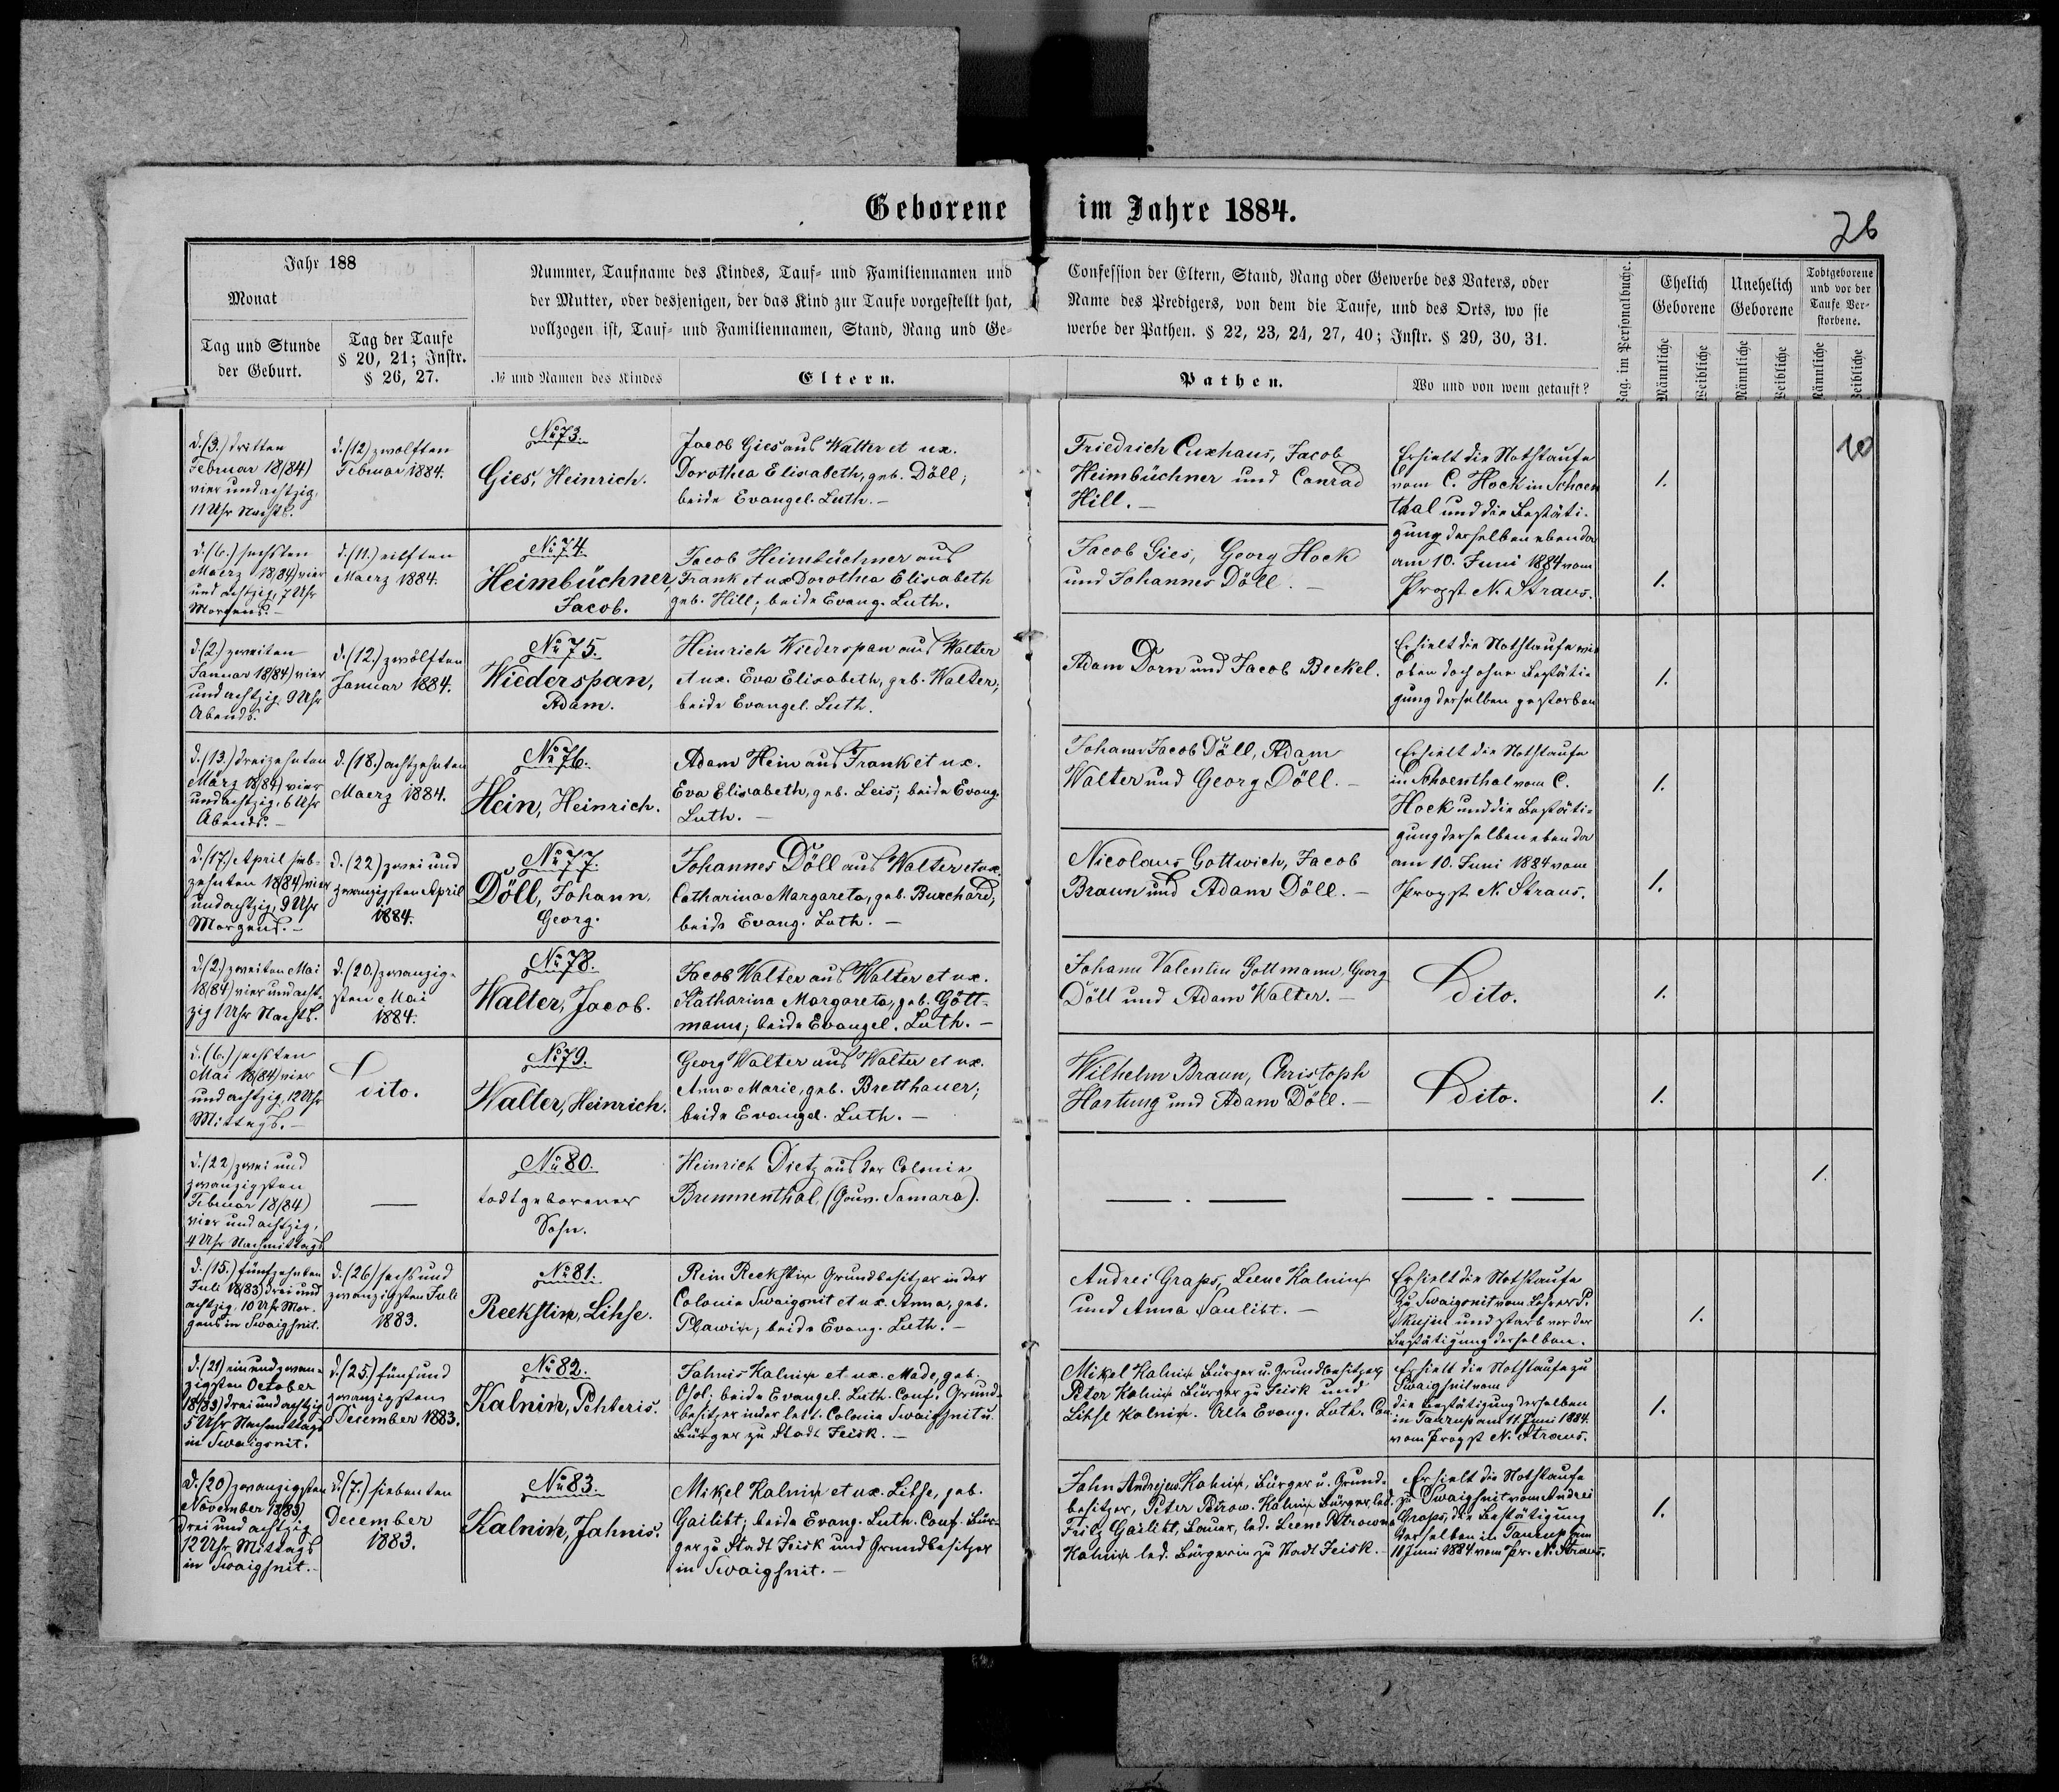 Geborene im Jahre 1884.
26
Jahr 188
Monat
Tag und Stunde
der Geburt.
Tag der Taufe
§ 20, 21; Instr.
§ 26, 27.
Nummer, Taufname des Kindes, Tauf- und Familiennamen und
der Mutter, oder desjenigen, der das Kind zur Taufe vorgestellt hat,
vollzogen ist, Tauf- und Familiennamen, Stand, Rang und Ge-
№ und Namen des Kindes
Eltern.
Confession der Eltern, Stand, Rang oder Gewerbe des Vaters, oder
Name des Predigers, von dem die Taufe, und des Orts, wo sie
werbe der Pathen. § 22, 23, 24, 27, 40; Instr. § 29, 30, 31.
Pathen.
Wo und von wem getauft?
Pag. im Personalbuche.
Ehelich
Geborene
Unehelich
Geborene
Todtgeborene
und vor der
Taufe Ver-
storbene.
Männliche
Weibliche
Männliche
Weibliche
Männliche
Weibliche
10
d. (3.) dritten
Februar 18(84)
vier und achtzig.
11 Uhr Nachts.
d. (12) zwölften
Februar 1884.
№ 73.
Gies, Heinrich.
Jacob Gies aus Walter et ux.
Dorothea Elisabeth, geb. Döll;
beide Evangel. Luth. –
Friedrich Cuxhaus, Jacob
Heimbüchner und Conrad
Hill. –
Erhielt die Nothtaufe
vom C. Hock in Schoen
thal und die Bestäti-
gung derselben ebenda
am 10. Juni 1884 vom
Propst N. Straus.
1.
d. (6.) sechsten
Maerz 18(84) vier
und achtzig, 7 Uhr
Morgens. –
d. (11.) eilften
Maerz 1884.
№ 74.
Heimbüchner,
Jacob.
Jacob Heimbüchner aus
Frank et ux Dorothea Elisabeth
geb. Hill; beide Evang. Luth.
Jacob Gies, Georg Hock
und Johannes Döll. –
1.
d. (2.) zweiten
Januar 18(84) vier
und achtzig, 9 Uhr
Abends.
d. (12.) zwölften
Januar 1884.
№ 75.
Wiederspan,
Adam.
Heinrich Wiederspan aus Walter
et ux. Eva Elisabeth, geb. Walter;
beide Evangel. Luth.
Adam Dorn und Jacob Beckel.
Erhielt die Nothtaufe wie
oben doch ohne Bestäti-
gung derselben gestorben
1.
d. (13.) dreizehnten
März 18(84) vier
und achtzig, 6 Uhr
Abends. –
d. (18.) achtzehnten
Maerz 1884.
№ 76.
Hein, Heinrich.
Adam Hein aus Frank et ux.
Eva Elisabeth, geb. Leis; beide Evang.
Luth. –
Johann Jacob Döll, Adam
Walter und Georg Döll. –
Erhielt die Nothtaufe
in Schoenthal vom C.
Hock und die Bestäti-
gung derselben ebenda
am 10. Juni 1884 vom
Propst N. Straus.
1.
d. (17.) April sieb-
zehnten 18(84) vier
und achtzig, 9 Uhr
Morgens. –
d. (22) zwei und
zwanzigsten April
1884.
№ 77.
Döll, Johann
Georg.
Johannes Döll aus Walter et ux.
Catharina Margareta, geb. Burchard;
beide Evang. Luth. –
Nicolaus Gottwich, Jacob
Braun und Adam Döll. –
1.
d. (2.) zweiten Mai
18(84) vier und acht-
zig 1 Uhr Nachts.
d. (20.) zwanzig-
sten Mai
1884.
№ 78.
Walter, Jacob.
Jacob Walter aus Walter et ux.
Katharina Margareta, geb. Gott-
mann; beide Evangel. Luth. –
Johann Valentin Gottmann, Georg
Döll und Adam Walter. –
Dito.
1.
d. (6.) sechsten
Mai 18(84) vier
und achtzig, 12 Uhr
Mittags. –
Dito.
№ 79.
Walter, Heinrich.
Georg Walter aus Walter et ux.
Anna Marie, geb. Bretthauer;
beide Evangel. Luth. –
Wilhelm Braun, Christoph
Hartung und Adam Döll. –
Dito.
1.
d. (22) zwei und
zwanzigsten
Februar 18(84)
vier und achtzig,
4 Uhr Nachmittags
—
№ 80.
todtgeborener
Sohn.
Heinrich Dietz aus der Colonie
Brunnenthal, (Gouv. Samara).
— . —
— . —
1.
d. (15.) fünfzehnten
Juli 18(83) drei und
achtzig. 10 Uhr Mor-
gens in Swaigsnit.
d. (26) sechs und
zwanzigsten Juli
1883.
№ 81.
Reekstin, Lihse.
Rein Reekstin Grundbesitzer in der
Colonie Swaigsnit et ux. Anna, geb.
Plawin; beide Evang. Luth. –
Andrei Graps, Leene Kalnin
und Anna Saulibt. –
Erhielt die Nothtaufe
zu Swaigsnit vom Lehrer P.
Skujin und starb vor der
Bestätigung derselben.
1.
d. (21) ein und zwan-
zigsten October
18(83) drei und achtzig
5 Uhr Nachmittags
in Swaigsnit.
d. (25.) fünf und
zwanzigsten
December 1883.
№ 82.
Kalnin, Pehteris.
Jahnis Kalnin et ux. Made, geb.
Ohsol; beide Evangel. Luth. Conf. Grund-
besitzer in der lett. Colonie Swaigsnit u.
Bürger zu Stadt Jeisk. –
Mikel Kalnin Bürger u. Grundbesitzer,
Peter Kalnin Bürger zu Jeisk und
Lihse Kalnin. Alle Evang. Luth. Con.
Erhielt die Nothtaufe zu
Swaigsnit vom
die Bestätigung derselben
in Tanrup am 11. Juni 1884.
vom Propst N. Straus.
1.
d. (20) zwanzigsten
November 18(83)
drei und achtzig
12 Uhr Mittags
in Swaigsnit. –
d. (7.) siebenten
December
1883.
№ 83.
Kalnin, Jahnis.
Mikel Kalnin et ux. Lihse, geb.
Gailibt; beide Evang. Luth. Conf. Bür-
ger zu Stadt Jeisk und Grundbesitzer
in Swaigsnit. –
Jahn Andrejew Kalnin, Bürger u. Grund-
besitzer, Peter Petrow. Kalnin Bürger, led.
Fritz Gailibt, Bauer, led. Leene Petrowna
Kalnin led. Bürgerin zu Stadt Jeisk. –
Erhielt die Nothtaufe
zu Swaigsnit vom Andrei
Graps, die Bestätigung
derselben in Tanrup am
11 Juni 1884 vom Pr. N. Straus.
1.